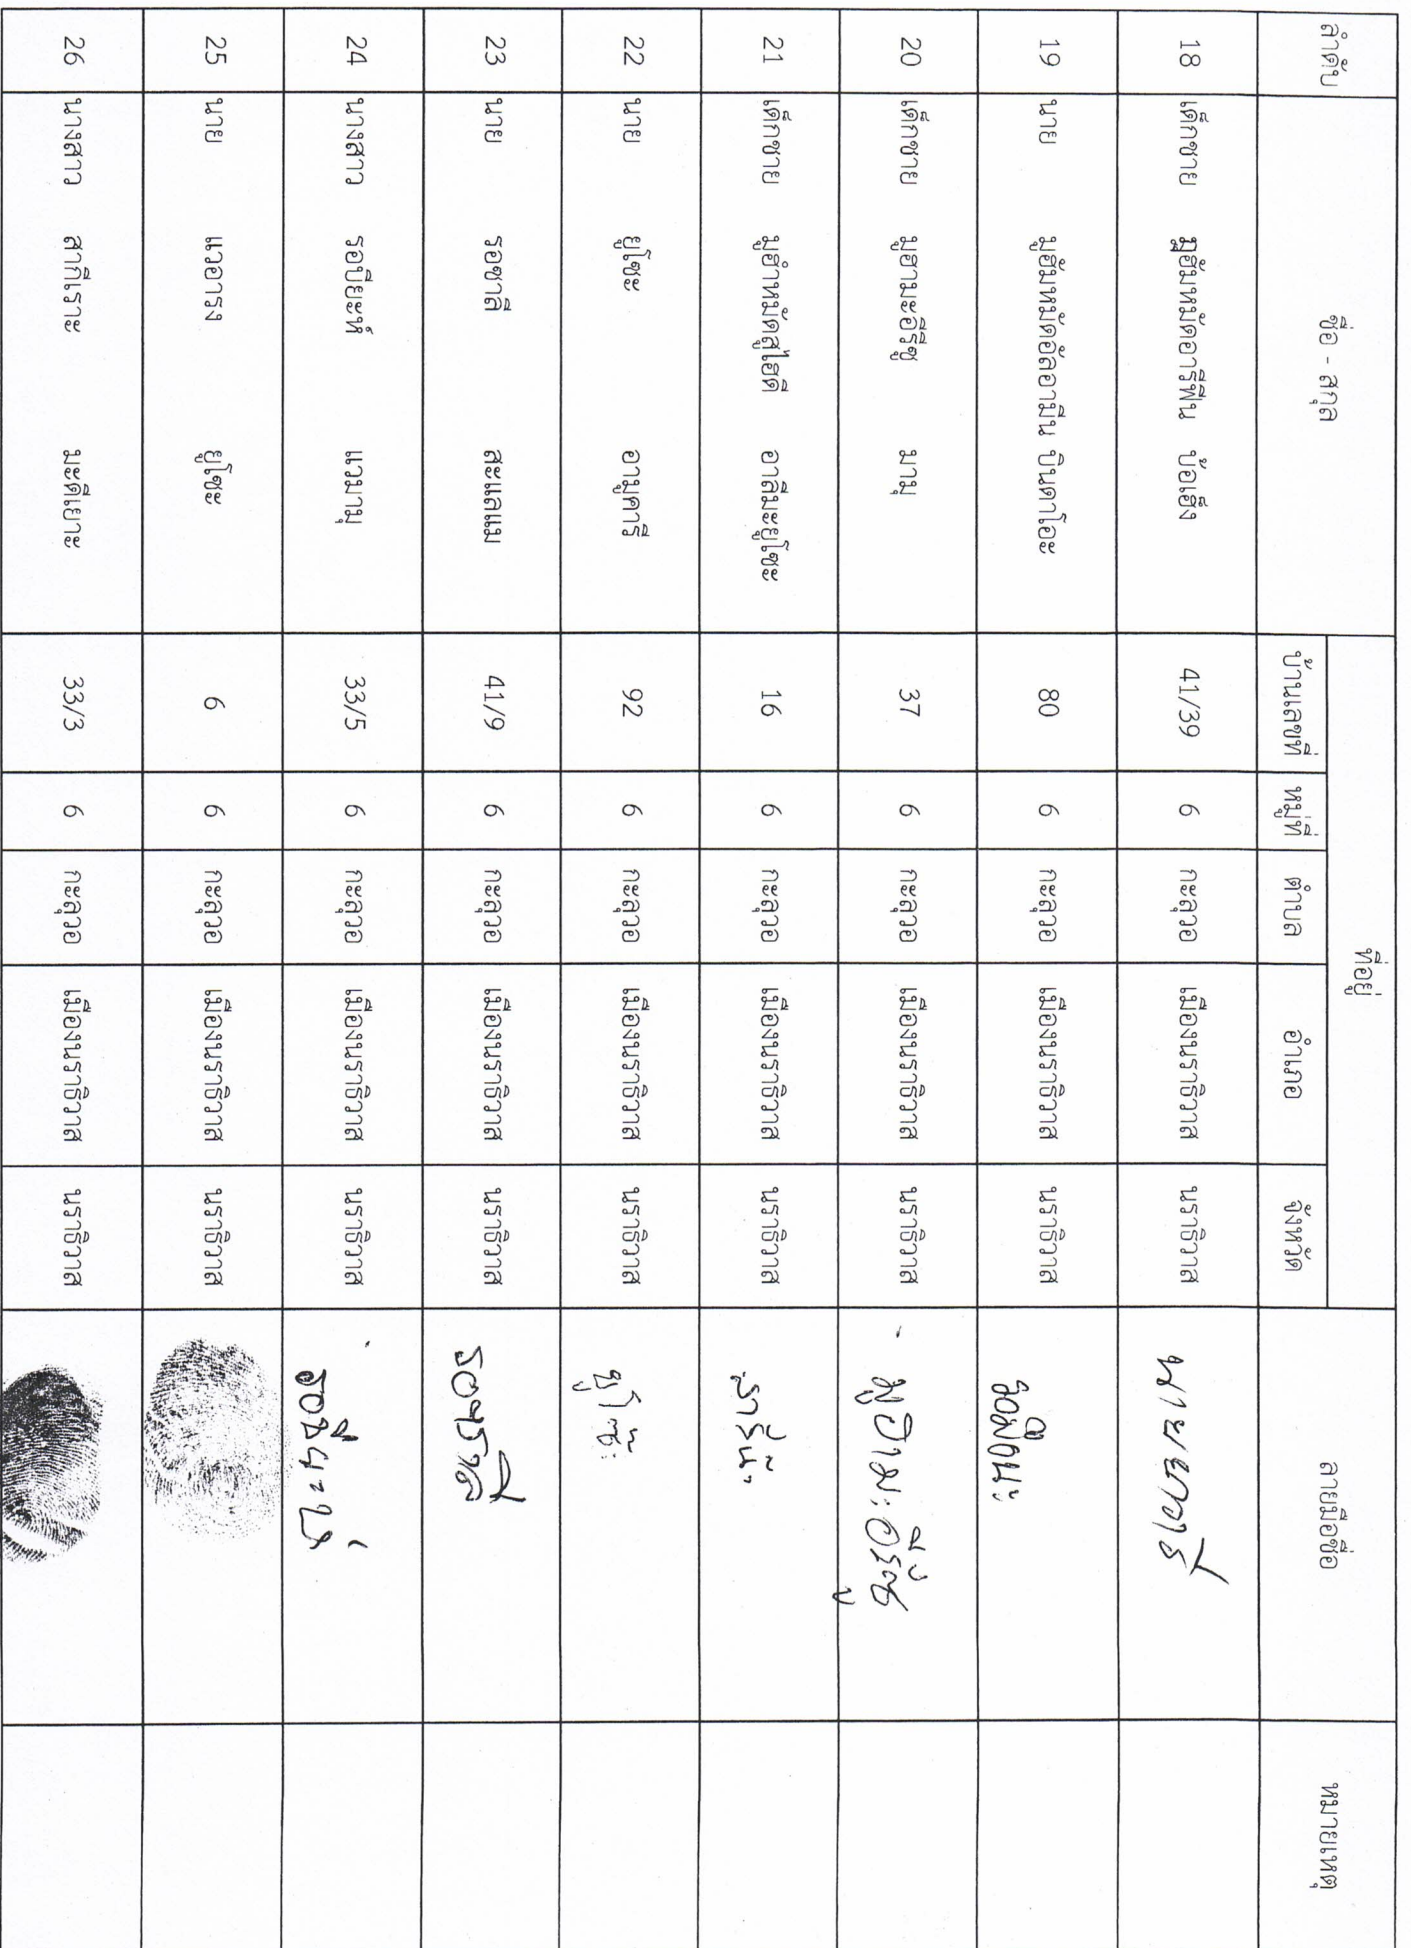 ลำดับ ชื่อ - สกุล ที่อยู่ ลายมือชื่อ หมายเหตุ
บ้านเลขที่ หมู่ที่ ตำบล อำเภอ จังหวัด
18 เด็กชาย มูฮัมหมัดอารีฟีน บือเฮง 41/39 6 กะลุวอ เมืองนราธิวาส นราธิวาส
19 นาย มูฮัมหมัดอัลอามีน บินดาโอะ 80 6 กะลุวอ เมืองนราธิวาส นราธิวาส
20 เด็กชาย มูฮามะอีรีซู มามุ 37 6 กะลุวอ เมืองนราธิวาส นราธิวาส
21 เด็กชาย มูฮำหมัดสูไฮดี อาลีมะยูโซะ 16 6 กะลุวอ เมืองนราธิวาส นราธิวาส
22 นาย ยูโซะ อามูคารี 92 6 กะลุวอ เมืองนราธิวาส นราธิวาส
23 นาย รอซาลี สะแลแม 41/9 6 กะลุวอ เมืองนราธิวาส นราธิวาส
24 นางสาว รอบียะห์ แวมามุ 33/5 6 กะลุวอ เมืองนราธิวาส นราธิวาส
25 นาย แวอารง ยูโซะ 6 6 กะลุวอ เมืองนราธิวาส นราธิวาส
26 นางสาว สากีเราะ มะดีเยาะ 33/3 6 กะลุวอ เมืองนราธิวาส นราธิวาส